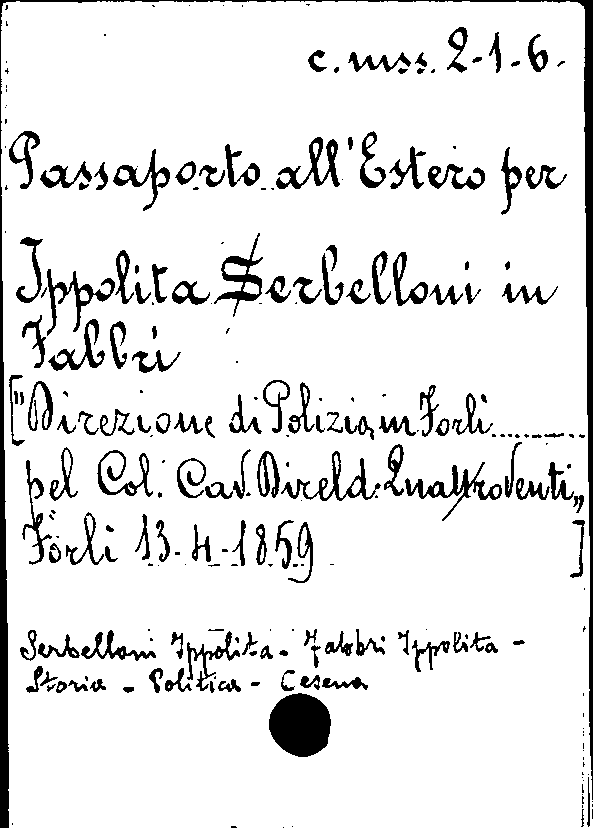 c. mss. 2-1-6.
Passaporto all'Estero per
Ippolita Serbelloni in
Fabbri
["Direzione di Polizia in Forlì........
pel Col. Cav. Direld: Quattroventi„
Forlì 13-4-1859 ]
Serbelloni Ippolita - Fabbri Ippolita -
Storia - Politica - Cesena